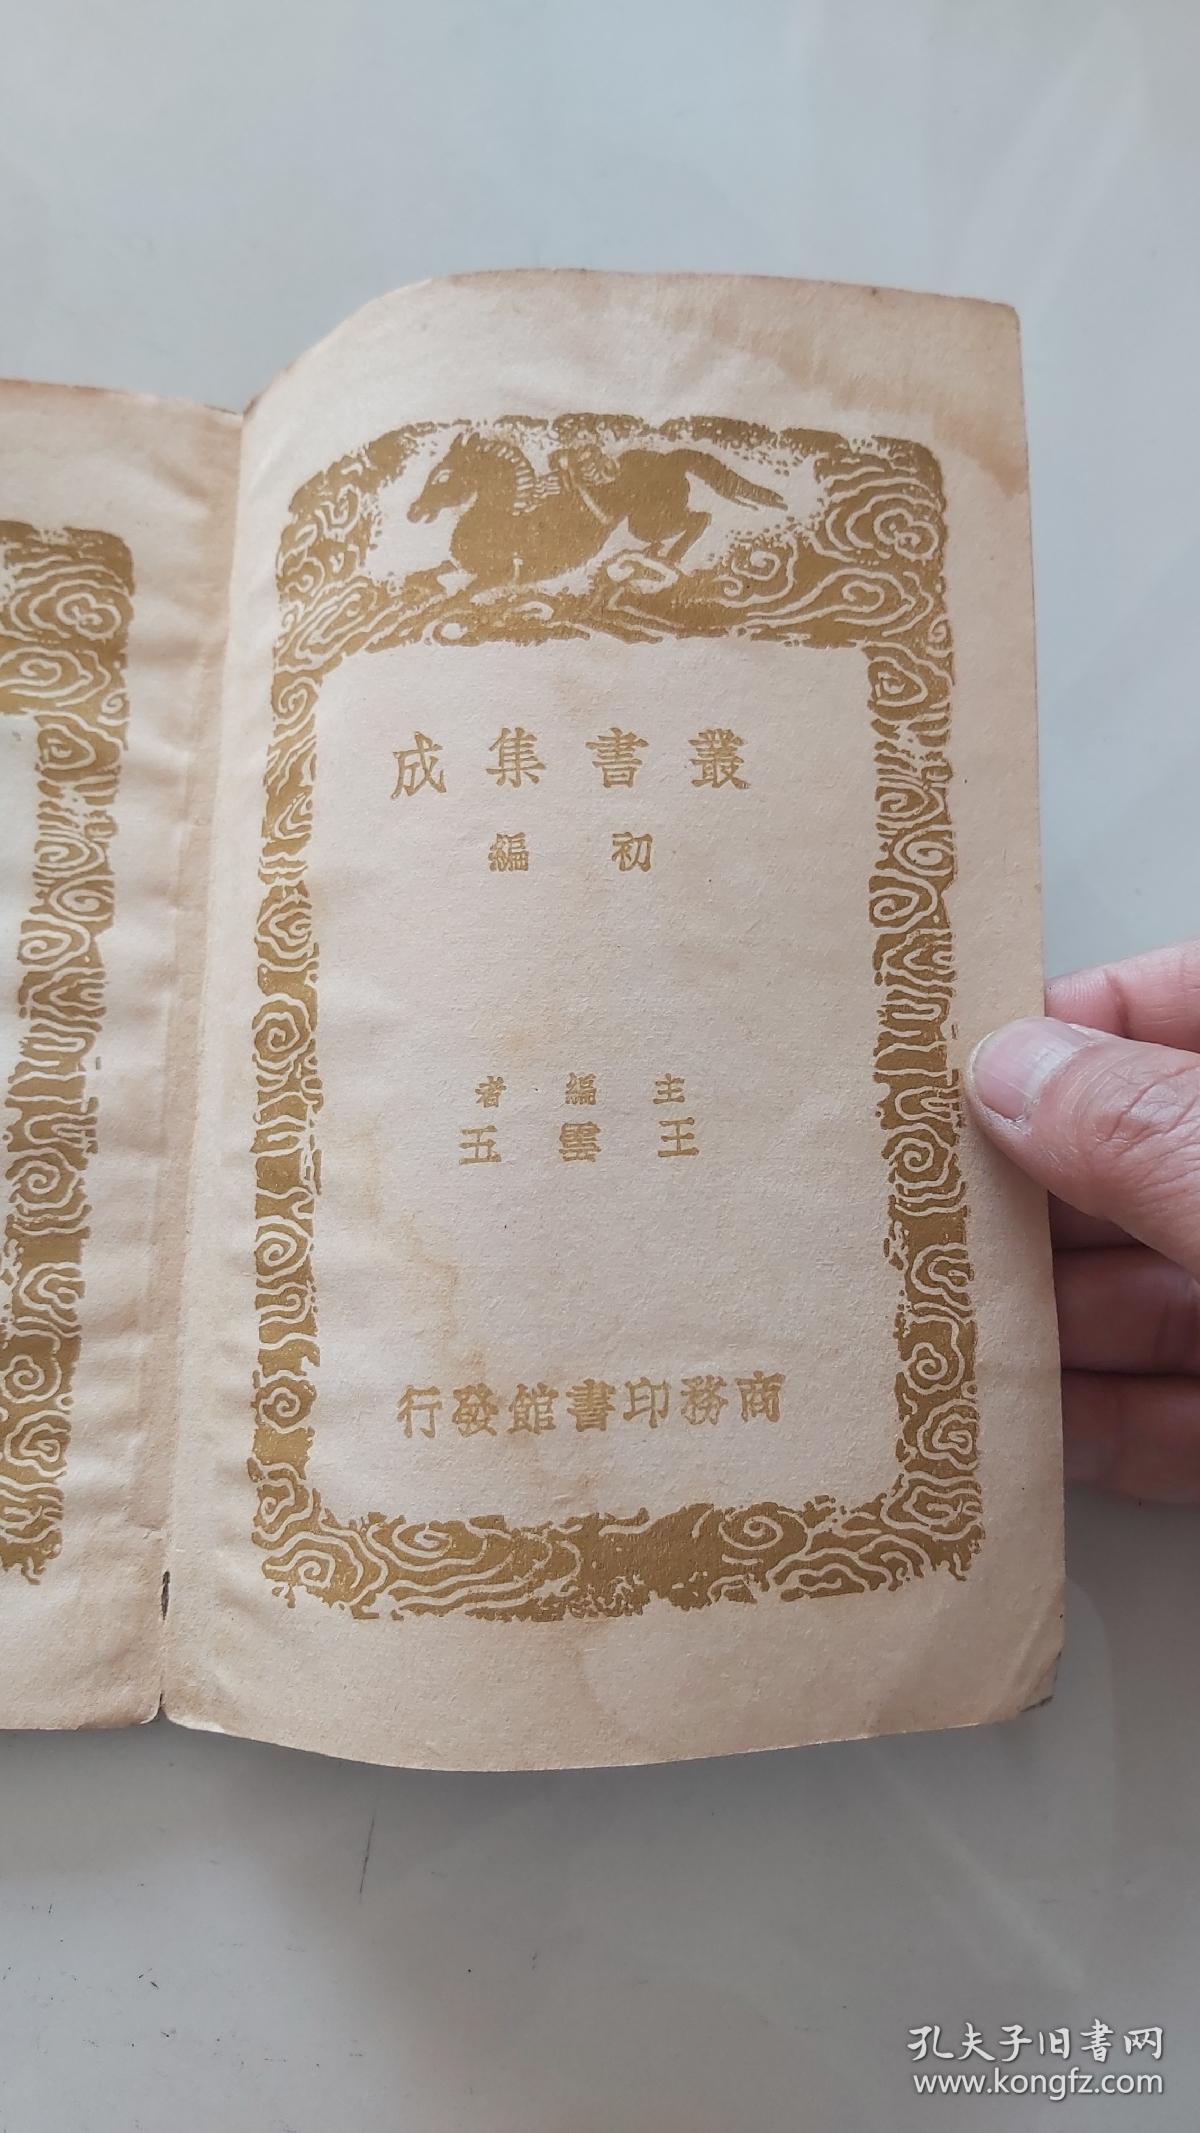 叢書集成
初編
主編者
王雲五
商務印書館發行
孔夫子旧书网
www.kongfz.com